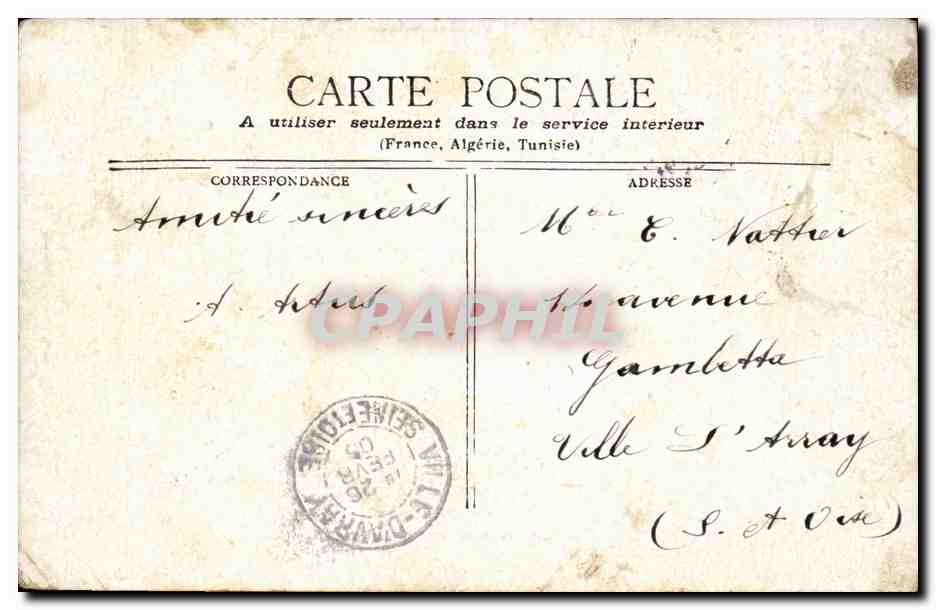 CARTE POSTALE
A utiliser seulement dans le service intérieur
(France, Algérie, Tunisie)
CORRESPONDANCE
Amitié sincères
A.
ADRESSE
E. Nattier
avenue
Gambetta
Ville D'Avray
(S. et Oise)
CPAPHIL
VILLE-D'AVRAY
SEINE ET OISE
26
FEVR
05